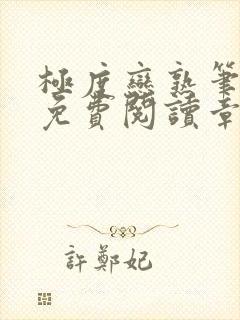 極度戀熟筆
免費閱讀章
許鄭妃